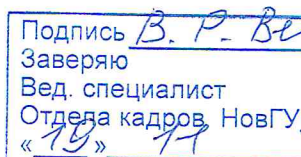 Подпись В. Р. Ве
Заверяю
Вед. специалист
Отдела кадров НовГУ
« 19 » 11